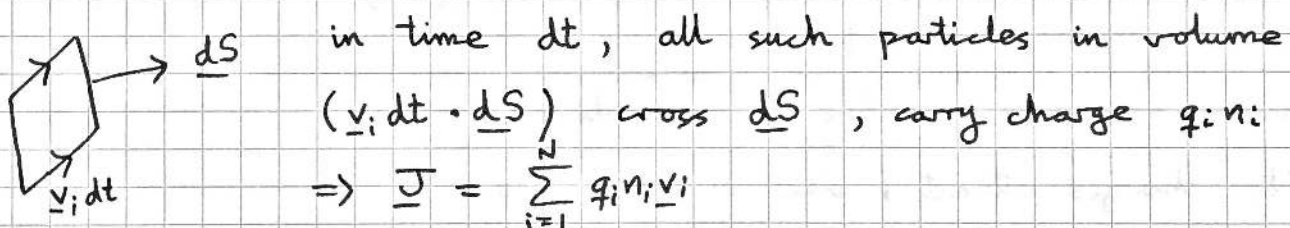 dS in time dt, all such particles in volume
(v_i dt · dS) cross dS, carry charge q_i n_i
v_i dt => J = ∑_{i=1}^{N} q_i n_i v_i